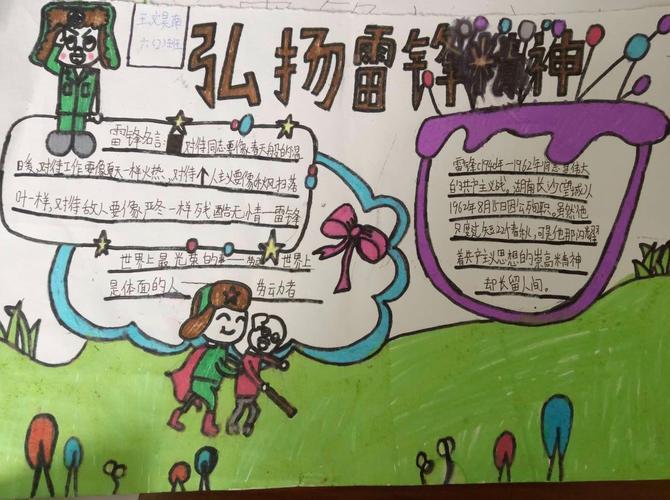 弘扬雷锋精神
六(2)班
雷锋名言:对待同志要像春天般的温
暖,对待工作要像夏天一样火热,对待个人主义要像秋风扫落
叶一样,对待敌人要像严冬一样残酷无情——雷锋
世界上最光荣的事——劳动 世界上
是体面的人——劳动者
雷锋(1940年-1962年)
的共产主义战,湖南长沙(望城)人
1962年8月15日因公殉职。虽然他
只度过短短22个春秋,可是他那闪耀
着共产主义思想的崇高精神
却长留人间。